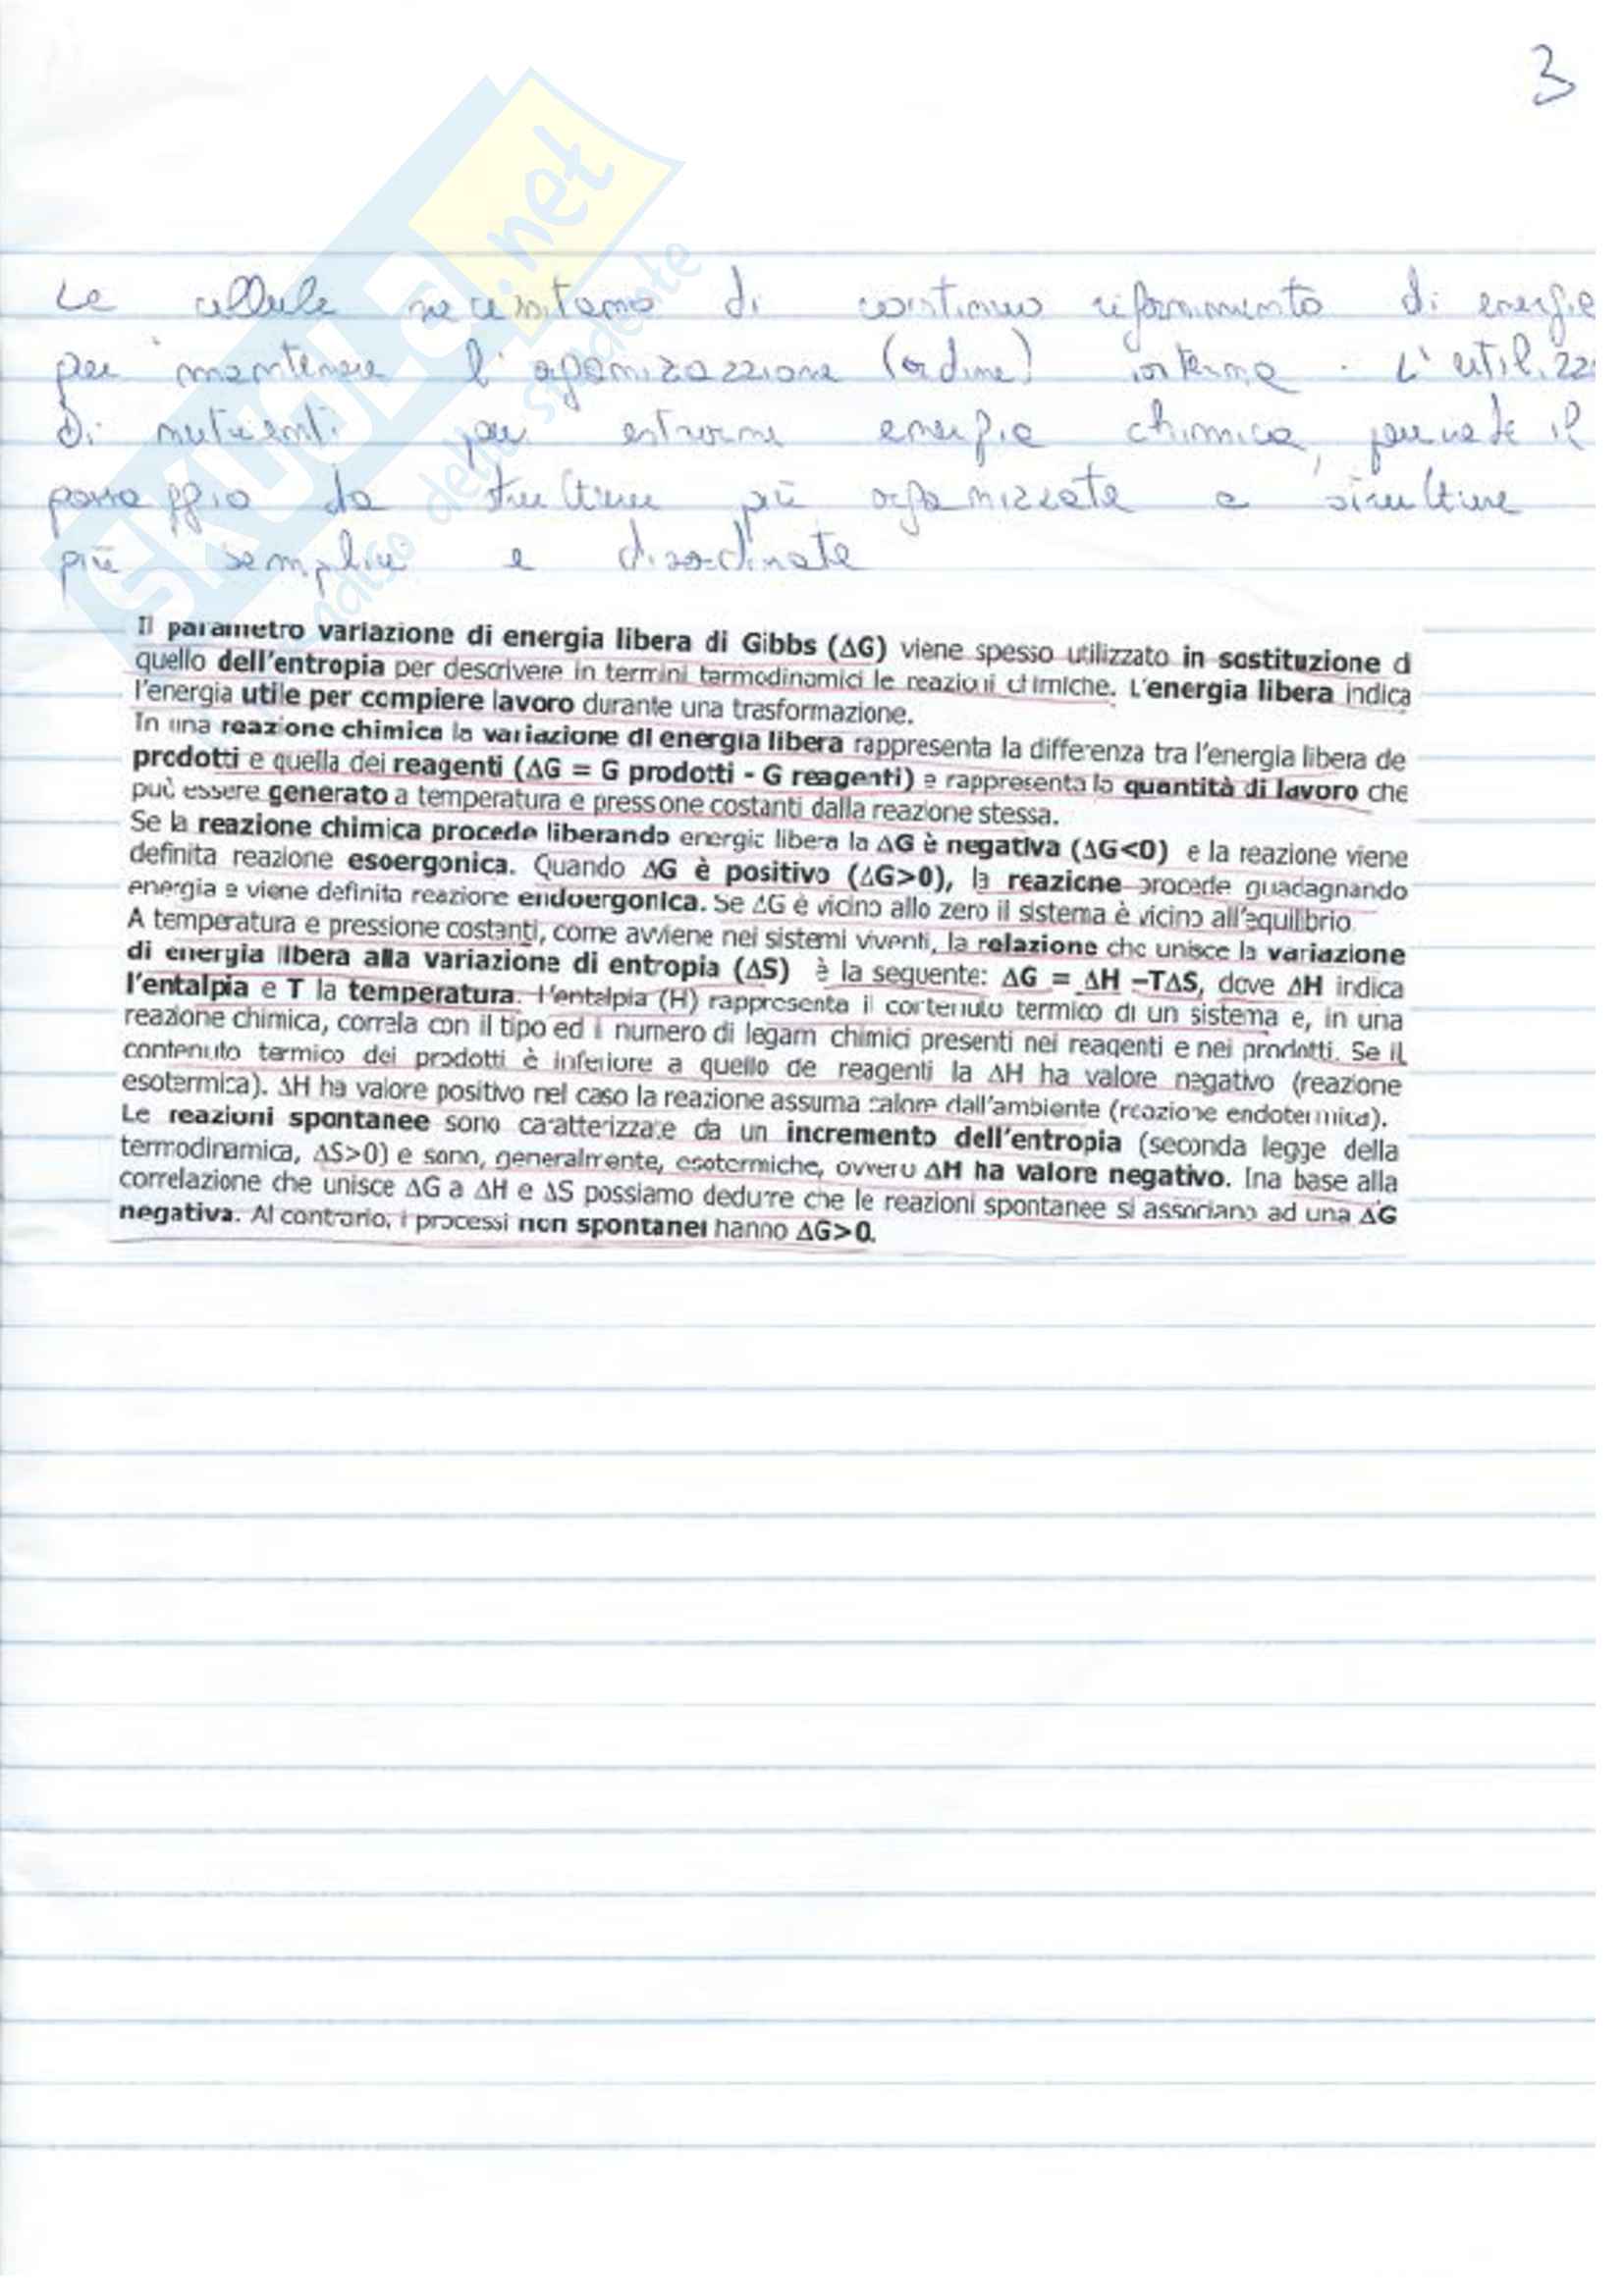 3
SKUOLA.net
dello studente
Le cellule necessitano di continuo rifornimento di energie
per mantenere l'organizzazzione (ordine) interna. L'utilizz
di nutrienti per estrarne energia chimica, prevede il
passaggio da strutture più organizzate a strutture
più semplici e disordinate
Il parametro variazione di energia libera di Gibbs (ΔG) viene spesso utilizzato in sostituzione d
quello dell'entropia per descrivere in termini termodinamici le reazioni chimiche. L'energia libera indica
l'energia utile per compiere lavoro durante una trasformazione.
In una reazione chimica la variazione di energia libera rappresenta la differenza tra l'energia libera de
prodotti e quella dei reagenti (ΔG = G prodotti - G reagenti) e rappresenta la quantità di lavoro che
può essere generato a temperatura e pressone costanti dalla reazione stessa.
Se la reazione chimica procede liberando energia libera la ΔG è negativa (ΔG<0) e la reazione viene
definita reazione esoergonica. Quando ΔG è positivo (ΔG>0), la reazione procede guadagnando
energia e viene definita reazione endoergonica. Se ΔG è vicino allo zero il sistema è vicino all'equilibrio.
A temperatura e pressione costanti, come avviene nei sistemi viventi, la relazione che unisce la variazione
di energia libera alla variazione di entropia (ΔS) è la seguente: ΔG = ΔH –TΔS, dove ΔH indica
l'entalpia e T la temperatura. l'entalpia (H) rappresenta il contenuto termico di un sistema e, in una
reazione chimica, correla con il tipo ed i numero di legam chimici presenti nei reagenti e nei prodotti. Se il
contenuto termico dei prodotti è inferiore a quello de reagenti la ΔH ha valore negativo (reazione
esotermica). ΔH ha valore positivo nel caso la reazione assuma calore dall'ambiente (reazione endotermica).
Le reazioni spontanee sono caratterizzate da un incremento dell'entropia (seconda legge della
termodinamica, ΔS>0) e sono, generalmente, esotermiche, ovvero ΔH ha valore negativo. Ina base alla
correlazione che unisce ΔG a ΔH e ΔS possiamo dedurre che le reazioni spontanee si associano ad una ΔG
negativa. Al contrario, i processi non spontanei hanno ΔG>0.